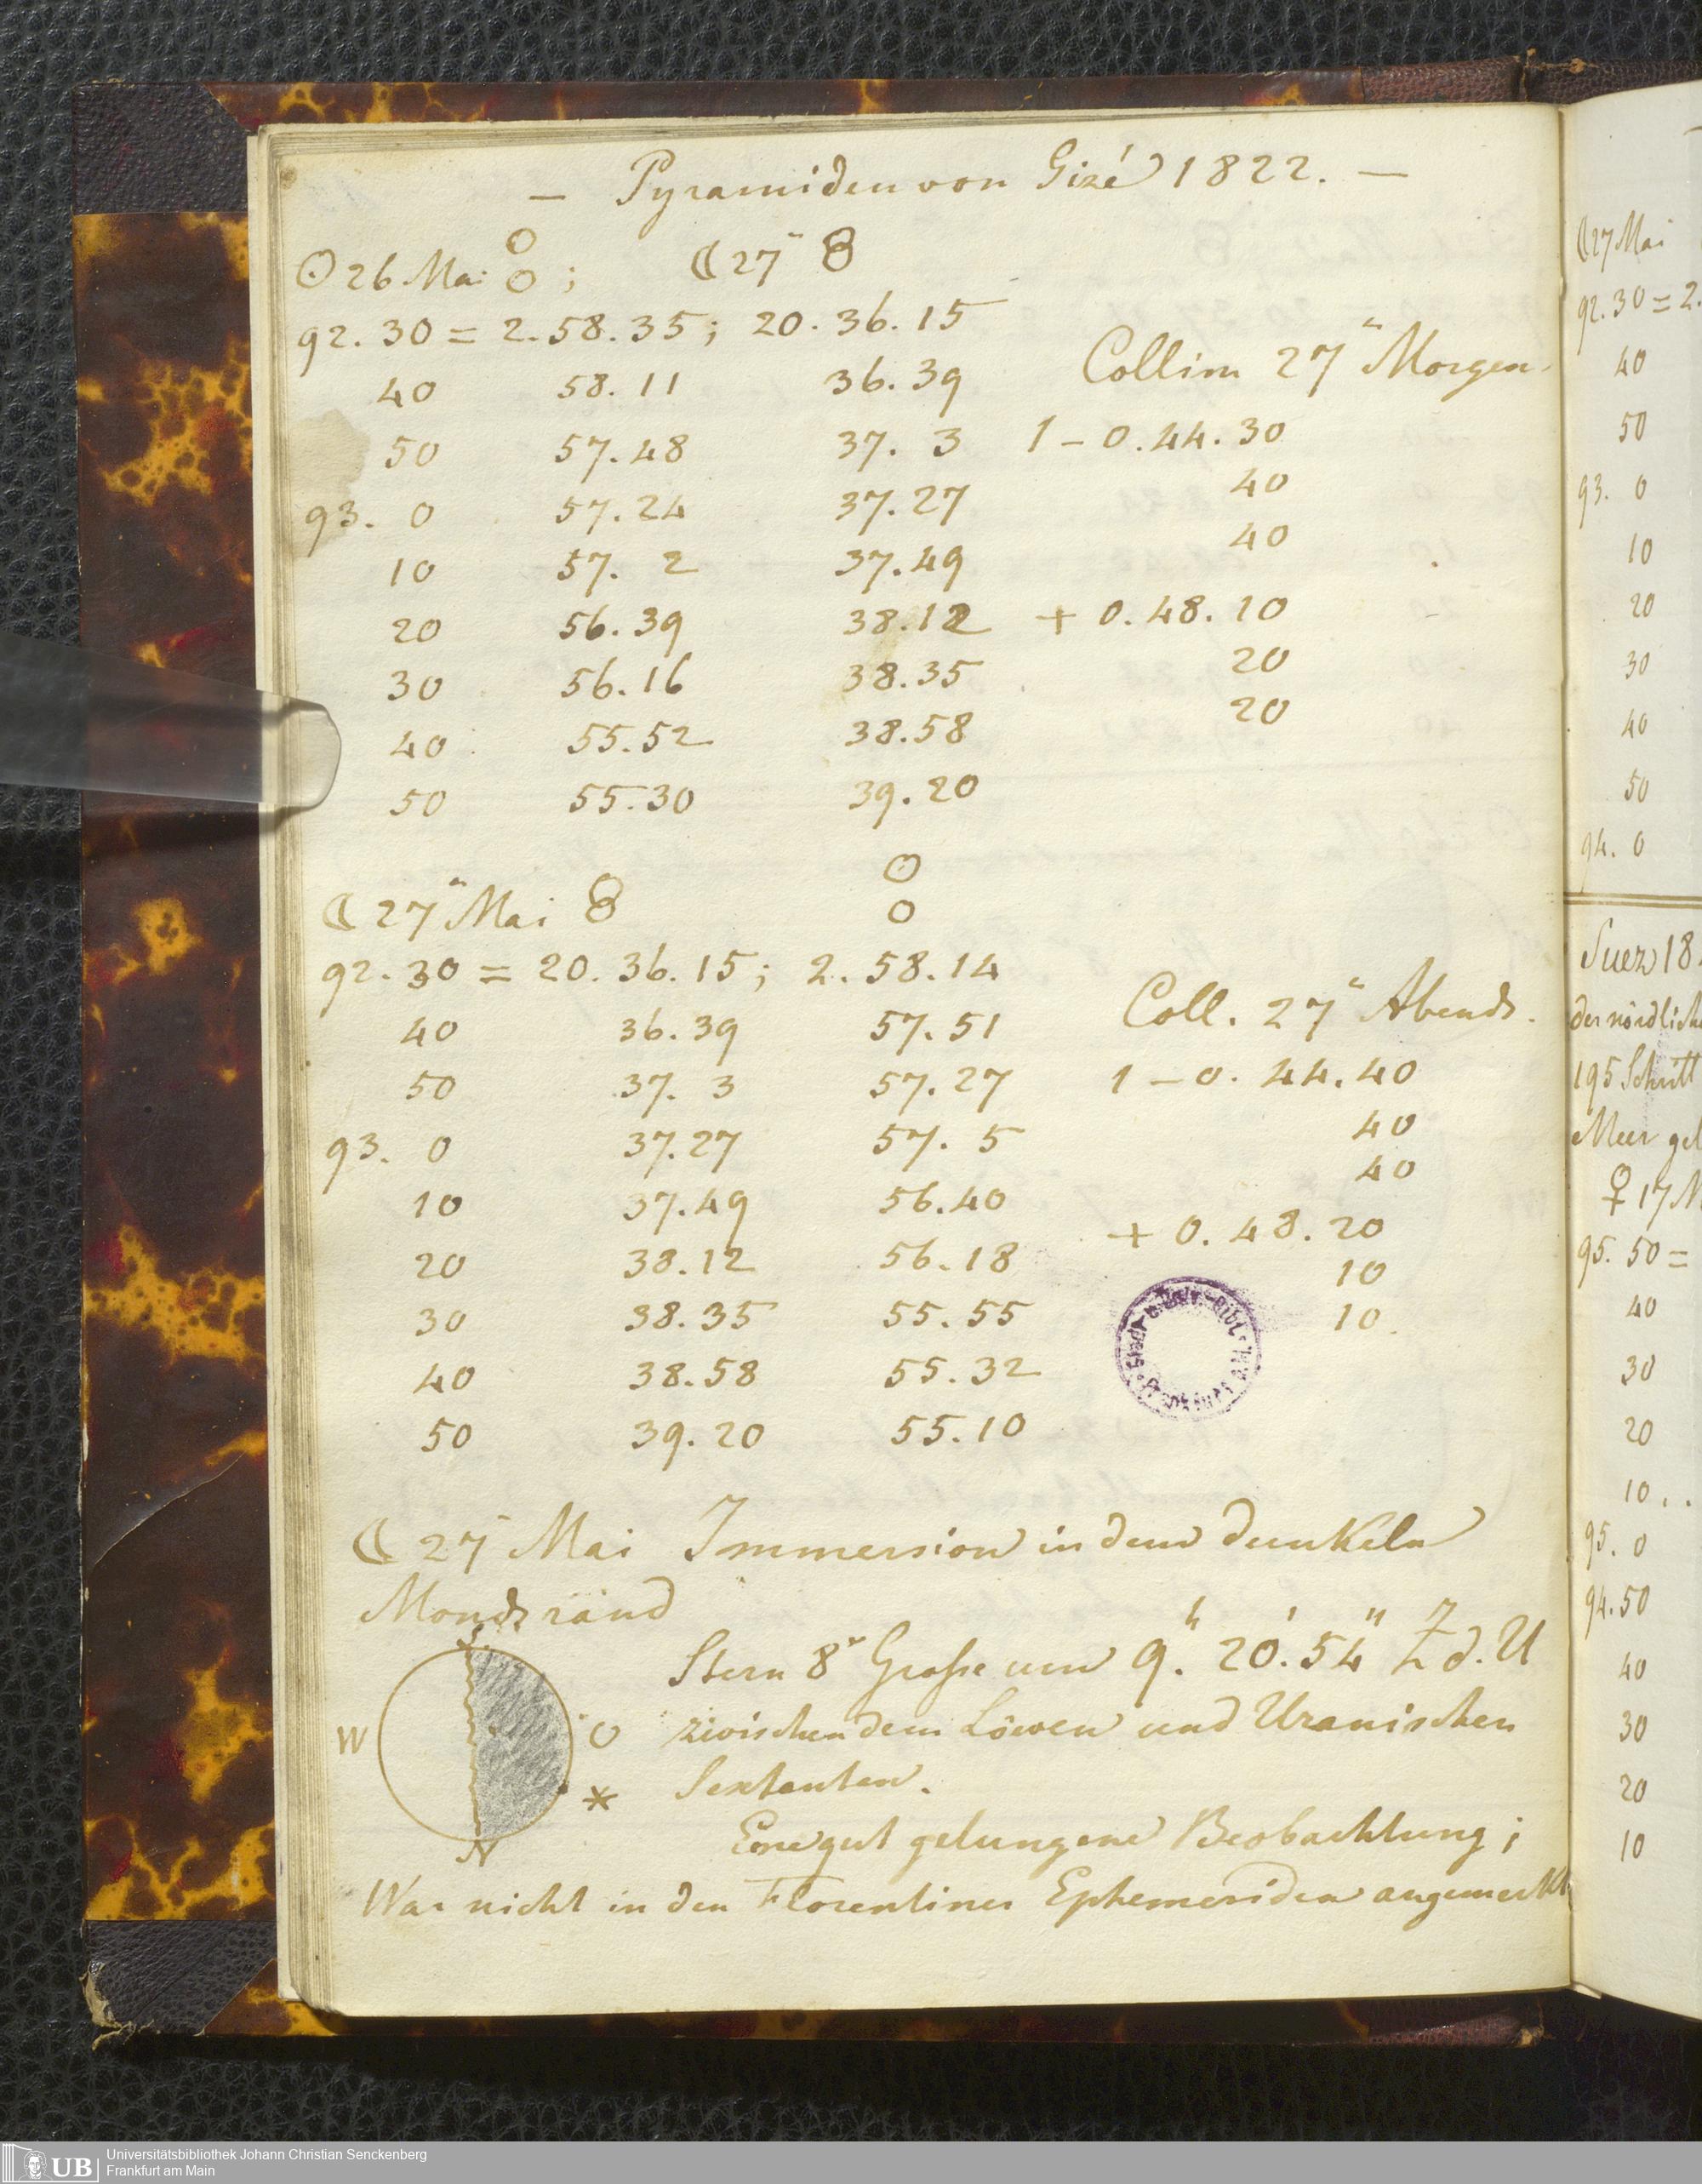 — Pyramiden von Gizé 1822. —
☉ 26 Mai ; ☾ 27"
92.30 = 2.58.35; 20.36.15
Collim 27" Morgen.
40 58.11 36.39
50 57.48 37. 3 1 – 0.44.30
93. 0 57.24 37.27 40
10 57. 2 37.49 40
20 56.39 38.12 + 0.48.10
30 56.16 38.35 20
40 55.52 38.58 20
50 55.30 39.20
☾ 27" Mai
92.30 = 20.36.15; 2.58.14
Coll. 27" Abends.
40 36.39 57.51
50 37. 3 57.27 1 – 0.44.40
93. 0 37.27 57. 5 40
10 37.49 56.40 40
20 38.12 56.18 + 0.48.20
30 38.35 55.55 10
40 38.58 55.32 10
50 39.20 55.10
☾ 27" Mai Immersion in dem dunkeln
Monds rand
Stern 8r Grosse um 9.h 20'.54" Z d. U
zwischen dem Löwen und Uranischen
Sextanten.
W O
*
N
Eine gut gelungene Beobachtung;
War nicht in den Florentiner Ephemeriden angemerkt
☾ 27 Mai
92.30 = 2.
40
50
93. 0
10
20
30
40
50
94. 0
Suez 18
der nördlich
195 Schritt
Meer gel
♀ 17 M
95. 50 =
40
30
20
10..
95. 0
94.50
40
30
20
10
UB
Universitätsbibliothek Johann Christian Senckenberg
Frankfurt am Main